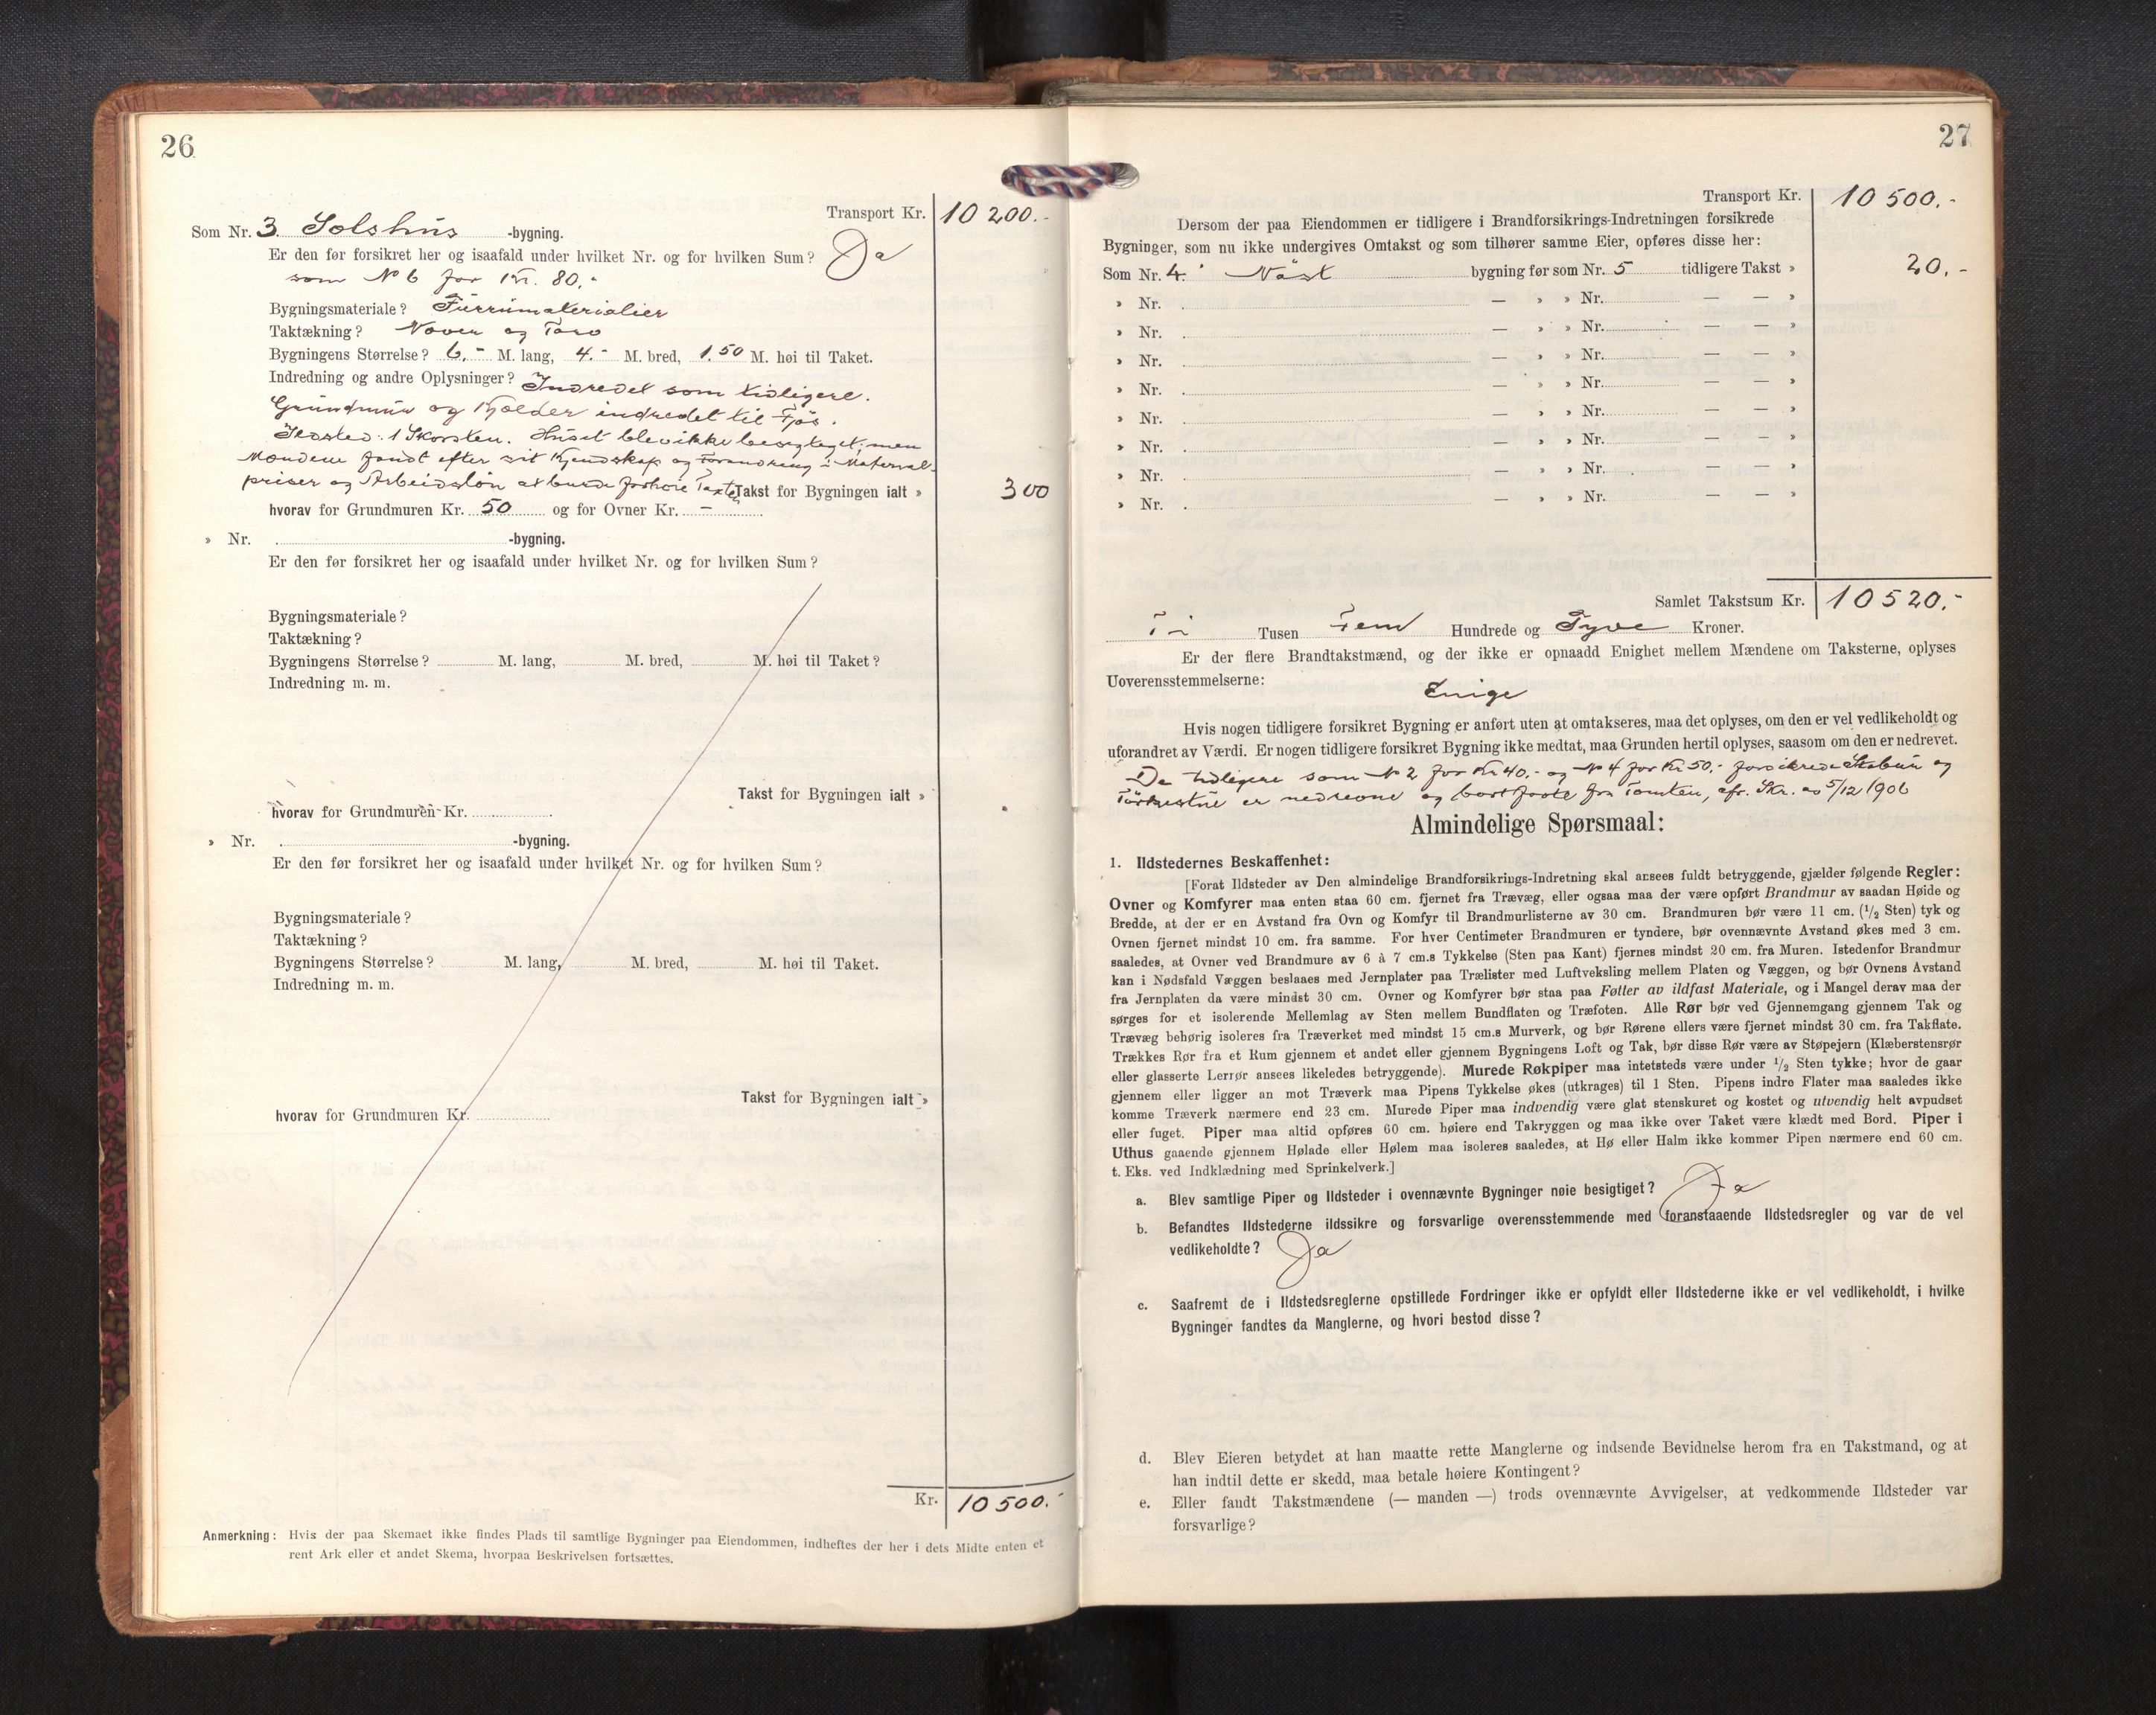 26
Transport Kr. 10 200.-
Som Nr. 3. Solshus -bygning.
Er den før forsikret her og isaafald under hvilket Nr. og for hvilken Sum? Ja
som No 6 for Kr. 80,-
Bygningsmateriale? Furrumaterialier
Taktækning? Nover og Torv
Bygningens Størrelse? 6.- M. lang, 4.- M. bred, 1.50 M. høi til Taket.
Indredning og andre Oplysninger? Indredet som tidligere.
Grundmur og Kjælder indredet til Fjøs.
Ildsted: 1 Skorsten. Huset blev ikke besigtiget; men
Mændene fandt efter sit Kjendskap og Forandring i Material-
priser og Arbeidsløn at burde forhøie Taxten Takst for Bygningen ialt » 300
hvorav for Grundmuren Kr. 50 og for Ovner Kr. -
» Nr. -bygning.
Er den før forsikret her og isaafald under hvilket Nr. og for hvilken Sum?
Bygningsmateriale?
Taktækning?
Bygningens Størrelse? M. lang, M. bred, M. høi til Taket?
Indredning m. m.
Takst for Bygningen ialt »
hvorav for Grundmuren Kr.
» Nr. -bygning.
Er den før forsikret her og isaafald under hvilket Nr. og for hvilken Sum?
Bygningsmateriale?
Taktækning?
Bygningens Størrelse? M. lang, M. bred, M. høi til Taket.
Indredning m. m.
Takst for Bygningen ialt »
hvorav for Grundmuren Kr.
Kr. 10 500.-
Anmerkning: Hvis der paa Skemaet ikke findes Plads til samtlige Bygninger paa Eiendommen, indheftes der her i dets Midte enten et
rent Ark eller et andet Skema, hvorpaa Beskrivelsen fortsættes.
27
Transport Kr. 10 500.-
Dersom der paa Eiendommen er tidligere i Brandforsikrings-Indretningen forsikrede
Bygninger, som nu ikke undergives Omtakst og som tilhører samme Eier, opføres disse her:
Som Nr. 4. Nøst bygning før som Nr. 5 tidligere Takst » 20.-
» Nr. — » » Nr. — — »
» Nr. — » » Nr. — — »
» Nr. — » » Nr. — — »
» Nr. — » » Nr. — — »
» Nr. — » » Nr. — — »
» Nr. — » » Nr. — — »
» Nr. — » » Nr. — — »
» Nr. — » » Nr. — — »
Samlet Takstsum Kr. 10 520.-
Ti Tusen Fem Hundrede og Tyve Kroner.
Er der flere Brandtakstmænd, og der ikke er opnaadd Enighet mellem Mændene om Taksterne, oplyses
Uoverensstemmelserne:
Enige
Hvis nogen tidligere forsikret Bygning er anført uten at omtakseres, maa det oplyses, om den er vel vedlikeholdt og
uforandret av Værdi. Er nogen tidligere forsikret Bygning ikke medtat, maa Grunden hertil oplyses, saasom om den er nedrevet.
De tidligere som No 2 for Kr 40.- og No 4 for Kr 50.- forsikrede Stabur og
Tørkestue er nedrevne og bortførte fra Tomten, cfr. Skr. av 5/12 1906
Almindelige Spørsmaal:
1. Ildstedernes Beskaffenhet:
[Forat Ildsteder av Den almindelige Brandforsikrings-Indretning skal ansees fuldt betryggende, gjælder følgende Regler:
Ovner og Komfyrer maa enten staa 60 cm. fjernet fra Trævæg, eller ogsaa maa der være opført Brandmur av saadan Høide og
Bredde, at der er en Avstand fra Ovn og Komfyr til Brandmurlisterne av 30 cm. Brandmuren bør være 11 cm. (1/2 Sten) tyk og
Ovnen fjernet mindst 10 cm. fra samme. For hver Centimeter Brandmuren er tyndere, bør ovennævnte Avstand økes med 3 cm.
saaledes, at Ovner ved Brandmure av 6 à 7 cm.s Tykkelse (Sten paa Kant) fjernes mindst 20 cm. fra Muren. Istedenfor Brandmur
kan i Nødsfald Væggen beslaaes med Jernplater paa Trælister med Luftveksling mellem Platen og Væggen, og bør Ovnens Avstand
fra Jernplaten da være mindst 30 cm. Ovner og Komfyrer bør staa paa Føtter av ildfast Materiale, og i Mangel derav maa der
sørges for et isolerende Mellemlag av Sten mellem Bundflaten og Træfoten. Alle Rør bør ved Gjennemgang gjennem Tak og
Trævæg behørig isoleres fra Træverket med mindst 15 cm.s Murverk, og bør Rørene ellers være fjernet mindst 30 cm. fra Takflate.
Trækkes Rør fra et Rum gjennem et andet eller gjennem Bygningens Loft og Tak, bør disse Rør være av Støpejern (Klæberstensrør
eller glasserte Lerrør ansees likeledes betryggende). Murede Røkpiper maa intetsteds være under 1/2 Sten tykke; hvor de gaar
gjennem eller ligger an mot Træverk maa Pipens Tykkelse økes (utkrages) til 1 Sten. Pipens indre Flater maa saaledes ikke
komme Træverk nærmere end 23 cm. Murede Piper maa indvendig være glat stenskuret og kostet og utvendig helt avpudset
eller fuget. Piper maa altid opføres 60 cm. høiere end Takryggen og maa ikke over Taket være klædt med Bord. Piper i
Uthus gaaende gjennem Hølade eller Hølem maa isoleres saaledes, at Hø eller Halm ikke kommer Pipen nærmere end 60 cm.
t. Eks. ved Indklædning med Sprinkelverk.]
a. Blev samtlige Piper og Ildsteder i ovennævnte Bygninger nøie besigtiget? Ja
b. Befandtes Ildstederne ildssikre og forsvarlige overensstemmende med foranstaaende Ildstedsregler og var de vel
vedlikeholdte? Ja
c. Saafremt de i Ildstedsreglerne opstillede Fordringer ikke er opfyldt eller Ildstederne ikke er vel vedlikeholdt, i hvilke
Bygninger fandtes da Manglerne, og hvori bestod disse?
d. Blev Eieren betydet at han maatte rette Manglerne og indsende Bevidnelse herom fra en Takstmand, og at
han indtil dette er skedd, maa betale høiere Kontingent?
e. Eller fandt Takstmændene (— manden —) trods ovennævnte Avvigelser, at vedkommende Ildsteder var
forsvarlige?